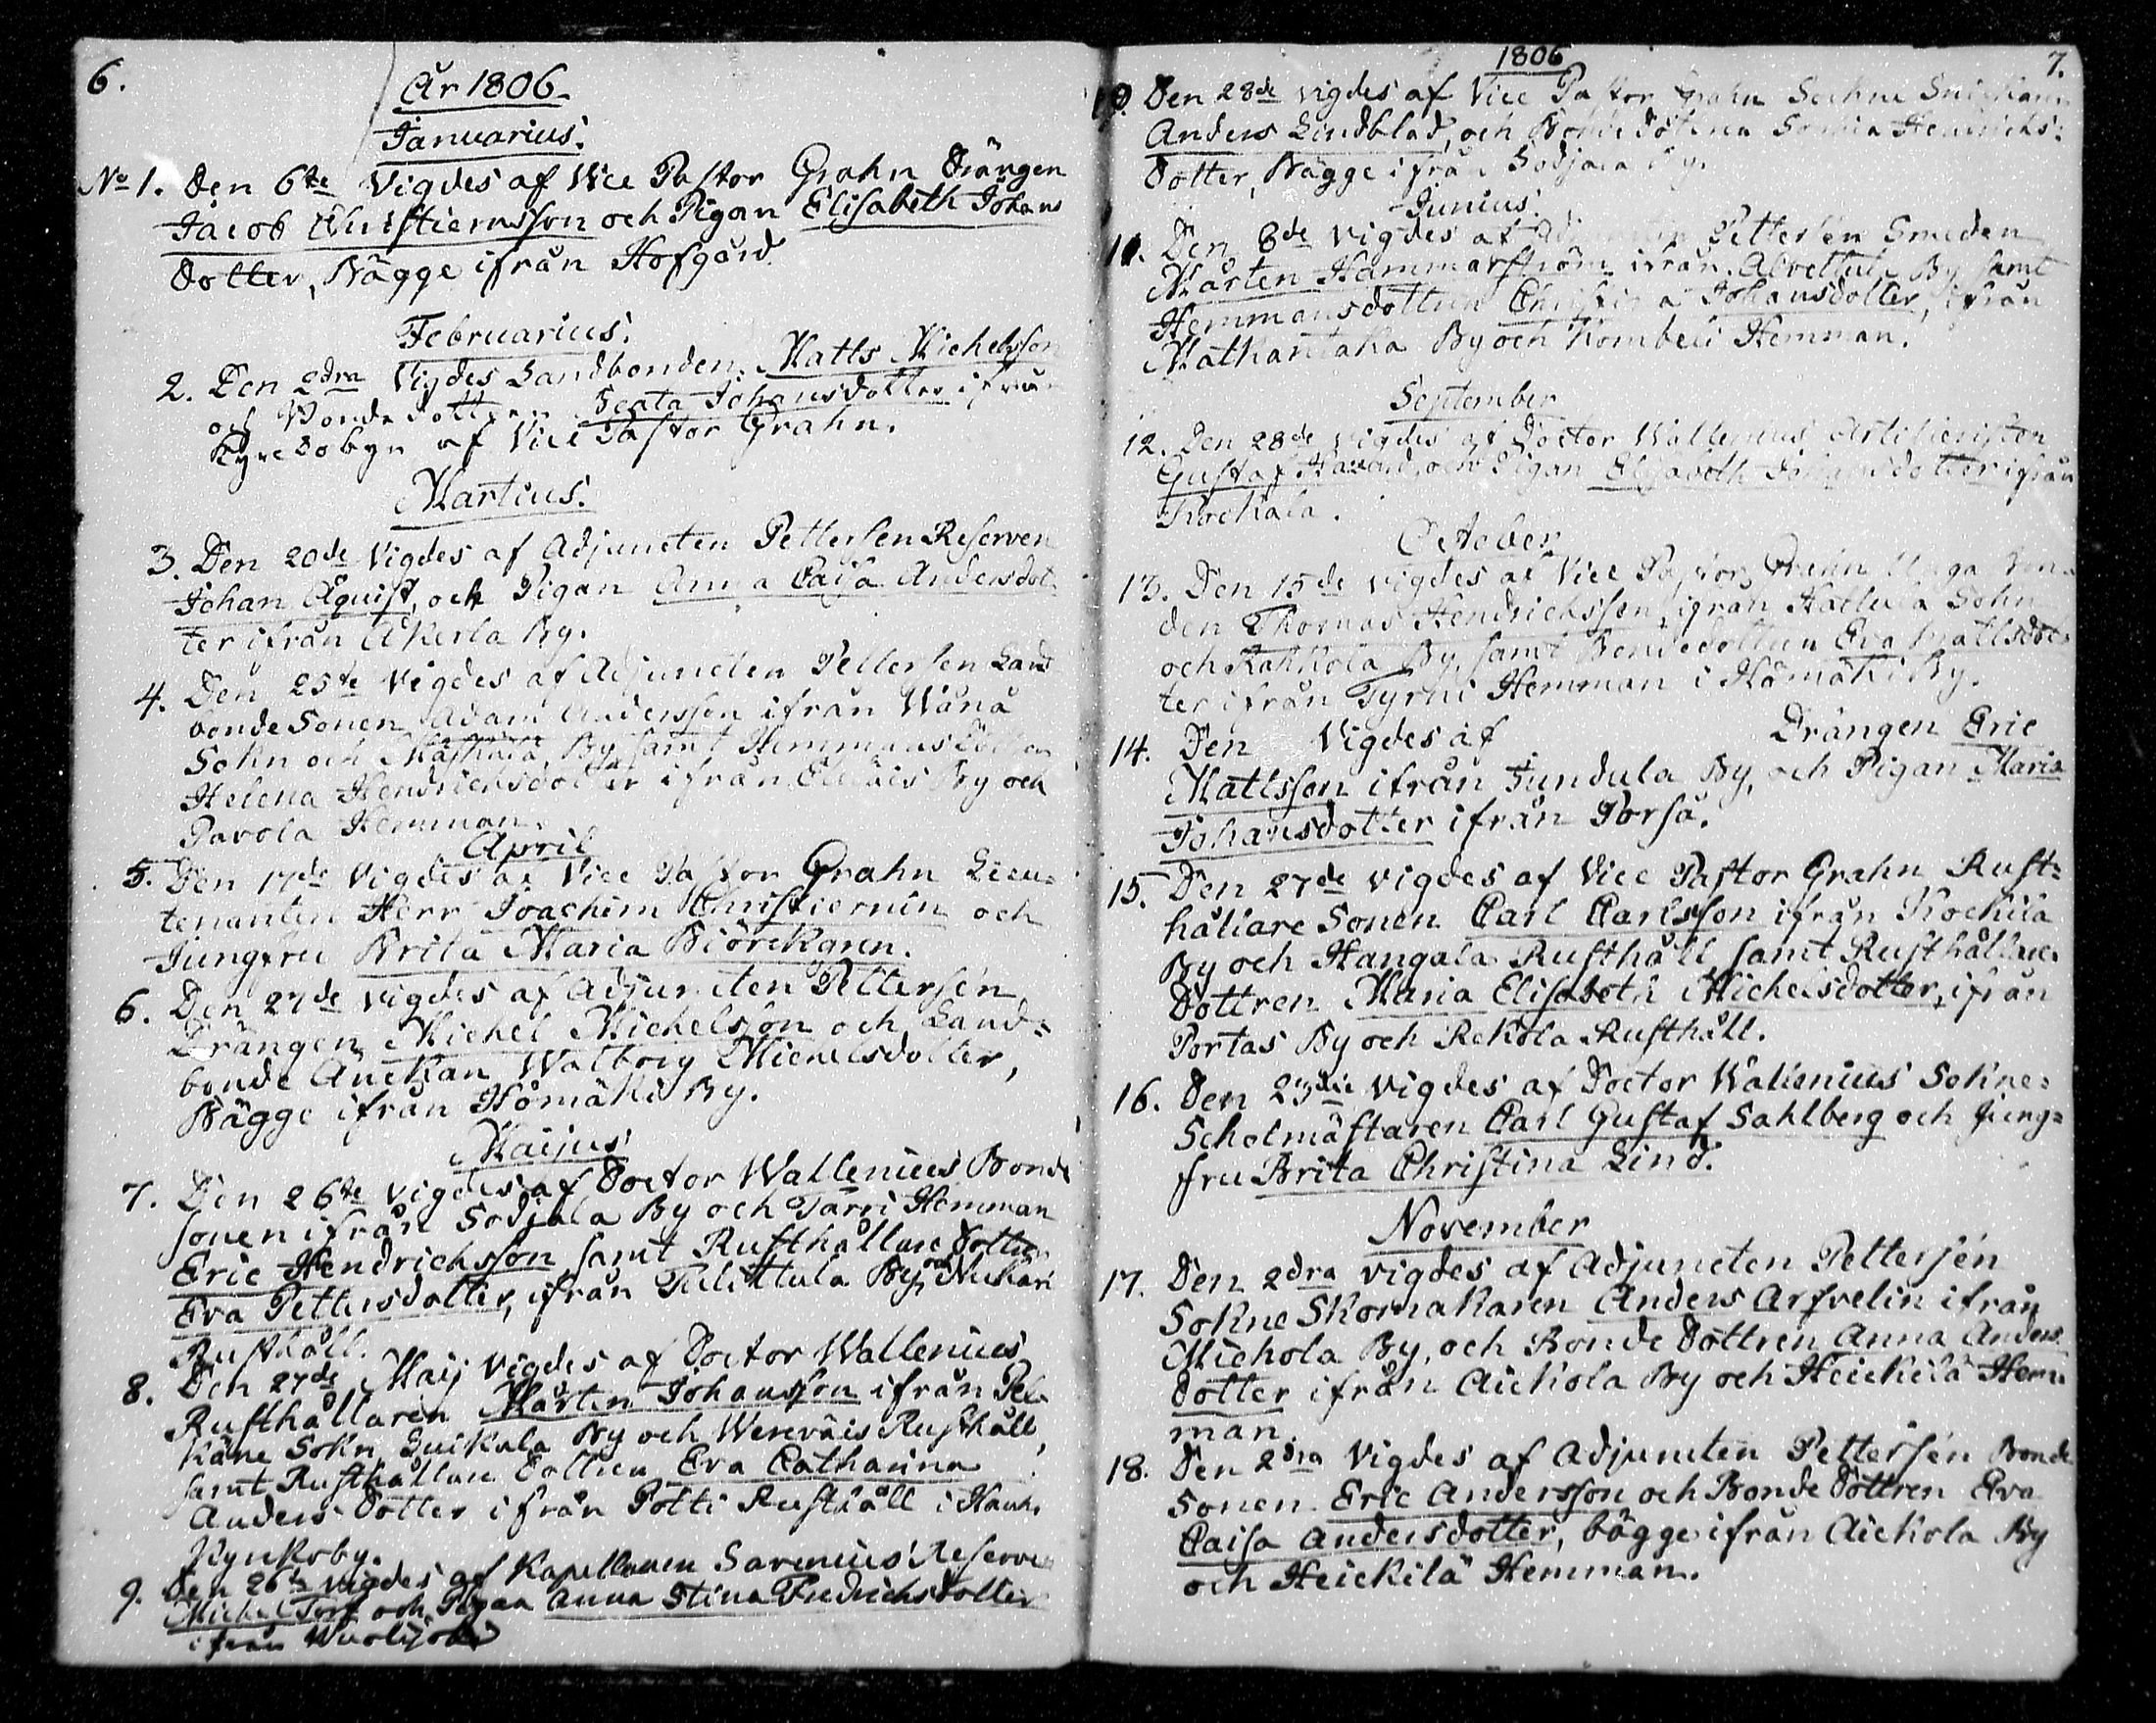 6.
År 1806.
Januarius.
No 1. Den 6te Vigdes af Vice Pastor Grahn Drängen
Jacob Christiernsson och Pigan Elisabeth Johans
dotter, Bägge ifrån Hofgård
Februarius.
2. Den 2dra Vigdes Landbonden Matts Michelsson
och Bonde dottren Beata Johansdotter ifrån
af Vice Pastor Grahn.
Martius.
3. Den 20de Vigdes af Adjuncten Pettersen Reserven
Johan Åquist, och Pigan Anna Caisa Andersdot
ter ifrån Åkerla By.
4. Den 25te Vigdes af Adjuncten Pettersen Land
bonde Sonen Adam Andersson ifrån Wånå
Sokn och By, samt Hemmans dottren
Helena Hendrichsdotter ifrån By och
Pavola Hemman.
April
5. Den 17de Vigdes af Vice Pastor Grahn Lieu-
tenanten Herr Joachim Christiernin och
Jungfru Brita Maria Biörckgren.
6. Den 27de Vigdes af Adjuncten Pettersén
Drängen Michel Michelsson och Land=
bonde Änckan Walborg Michelsdotter,
Bägge ifrån Homäki By.
Maijus
7. Den 26te Vigdes af Doctor Wallenius Bonde
sonen ifrån Sodjala By och Tarri Hemman
Eric Hendrichsson samt Rusthållare dottren
Eva Pettersdotter, ifrån Tulittula By, och Nukari
Rusthåll.
8. Den 27de Maij Vigdes af Doctor Wallenius
Rusthållaren Mårten Johansson ifrån Pel-
käne Sokn, Luikala By och Wereväis Rusthåll,
samt Rusthållare dottren Eva Catharina
Anders dotter ifrån Potti Rusthåll i Hauh.
Kyrkoby.
9. Den 26te Vigdes af Kapellanen Savenius Reserven
Michel Torf och Pigan Anna Stina Fredrichsdotter
ifrån
1806
7.
10. Den 28de Vigdes af Vice Pastor Grahn Sockne
Anders Lindblad, och Bonde dottren Sophia Hendrichs=
dotter, Bägge ifrån Sodjala By.
Junius.
11. Den 8de Vigdes af Adjuncten Pettersén Smeden
Mårten Hammarström ifrån Alvettula By samt
Hemmansdottren Christina Johansdotter, ifrån
Mathantaka By och Hemman.
September
12. Den 28de Vigdes af Doctor Wallenius Artilleristen
Gustaf och Pigan Elisabeth Johansdotter ifrån
October
13. Den 15de Vigdes af Vice Pastor Grahn Unga Bon-
den Thomas Hendrichsson, ifrån Hattula Sokn
och Rahkola By, samt Bondedottren Eva Mattsdot-
ter ifrån Tyrni Hemman i Homäki By.
14. Den Vigdes af Drängen Eric
Mattsson ifrån Sundula By, och Pigan Maria
Johansdotter ifrån Porsa.
15. Den 27de Vigdes af Vice Pastor Grahn Rust=
hållare Sonen Carl Carlsson ifrån Kockila
By och Hangala Rusthåll samt Rusthållare
Dottren Maria Elisabeth Michelsdotter, ifrån
Portas By och Rekola Rusthåll.
16. Den 23die Vigdes af Doctor Wallenius Sokne=
Scholmästaren Carl Gustaf Sahlberg och Jung=
fru Brita Christina Lind.
November
17. Den 2dra Vigdes af Adjuncten Pettersén
Sokne Skomakaren Anders Arfvelin ifrån
Michola By, och Bonde Dottren Anna Anders
dotter ifrån Aickola By och Heickilä Hem-
man.
18. Den 2dra Vigdes af Adjuncten Pettersén Bonde
Sonen Eric Andersson och Bonde Dottren Eva
Caisa Andersdotter, bägge ifrån Aickola By
och Heickilä Hemman.